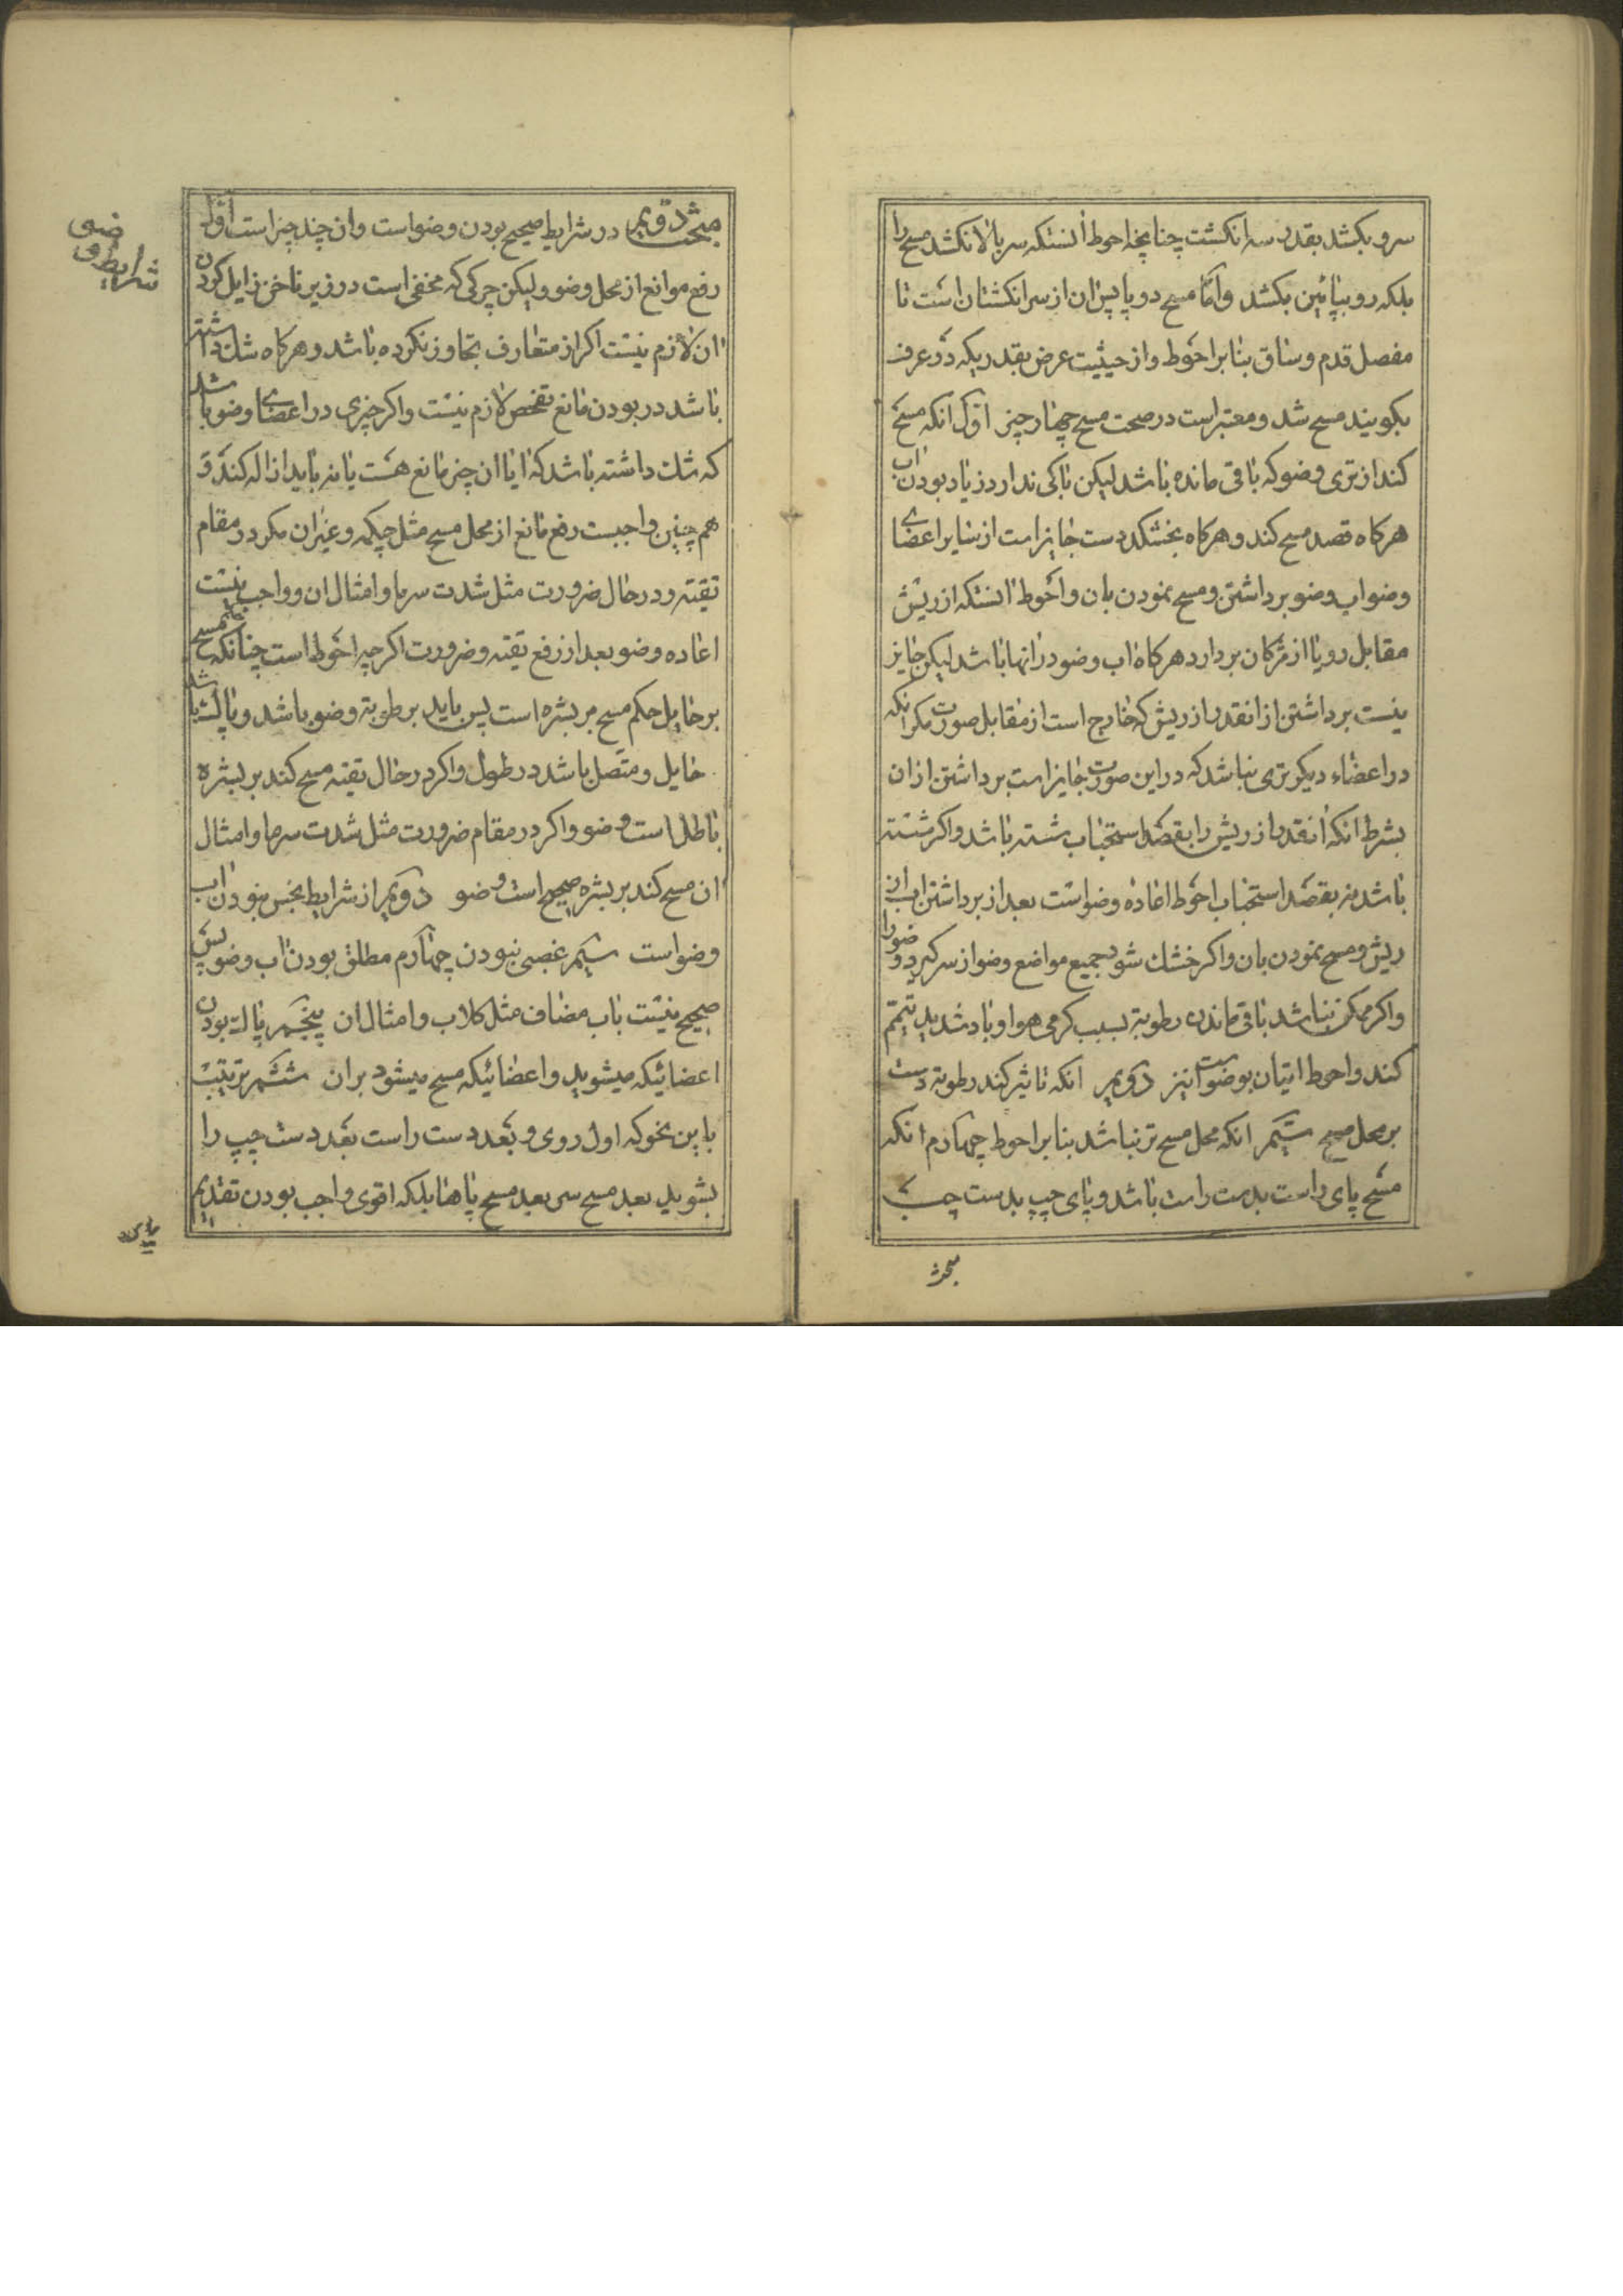 سر و بکشد بقدر سه انکشت چنانچه احوط آنستکه سر بالا نکشد مسح را
بلکه رو بپائین بکشد و امّا مسح دو پا پس ان از سر انکشتان است تا
مفصل قدم و ساق بنا بر احوط و از حیثیت عرض بقدریکه در عرف
بکویند مسح شد و معتبر است در صحت مسح چهار چیز اوّل انکه مسح
کند از تری وضو که باقی مانده باشد لیکن باکی ندارد زیاد بودن اب
هرکاه قصد مسح کند و هرکاه بخشکد دست جایز است از سایر اعضای
وضو اب وضو برداشتن و مسح نمودن بان و احوط انستکه از ریش
مقابل رو یا از مژکان بردارد هرکاه اب وضو در انها باشد لیکن جایز
نیست برداشتن از انقدر از ریش که خارج است از مقابل صورت مکر انکه
در اعضاء دیکر تری نباشد که در این صورت جایز است برداشتن از ان
بشرط انکه انقدر از ریش را بقصد استحباب شسته باشد و اکر شسته
باشد نه بقصد استحباب احوط اعاده وضو است بعد از برداشتن اب از
ریش و مسح نمودن بان و اکر خشک شود جمیع مواضع وضو از سر کیرد وضو را
و اکر ممکن نباشد باقی ماندن رطوبة بسبب کرمی هوا و باد شدید تیمّم
کند و احوط اتیان بوضو است نیز دویم انکه تاثیر کند رطوبة دست
بر محل مسح سیّم انکه محل مسح تر نباشد بنا بر احوط چهارم انکه
مسح پای راست بدست راست باشد و پای چپ بدست چپ
مبحث
مبحث دویم در شرایط صحیح بودن وضو است و ان چند چیز است اوّل
رفع موانع از محل وضو و لیکن چرکی که مخفی است در زیر ناخن زایل کردن
ان لازم نیست اکر از متعارف تجاوز نکرده باشد و هرکاه شک داشته
باشد در بودن مانع تفحّص لازم نیست و اکر چیزی در اعضای وضو باشد
که شک داشته باشد که ایا ان چیز مانع هست یا نه باید ازاله کند و
هم چنین واجبست رفع مانع از محل مسح مثل چکمه و غیر ان مکر در مقام
تقیّه و در حال ضرورت مثل شدت سرما و امثال ان و واجب نیست
اعاده وضو بعد از رفع تقیه و ضرورت اکر چه احوط است چنانکه مسح
بر حایل حکم مسح بر بشره است پس باید برطوبة وضو باشد و با پشت باشد
حایل و متصل باشد در طول و اکر در حال تقیه مسح کند بر بشره
باطل است وضو و اکر در مقام ضرورت مثل شدت سرما و امثال
ان مسح کند بر بشره صحیح است وضو دویم از شرایط نجس نبودن اب
وضو است سیّم غصبی نبودن چهارم مطلق بودن اب وضو پس
صحیح نیست باب مضاف مثل کلاب و امثال ان پنجم پاک بودن
اعضائیکه میشوید و اعضائیکه مسح میشود بر ان ششم ترتیب
باین نحو که اول روی و بعد دست راست بعد دست چپ را
بشوید بعد مسح سر بعد مسح پاها بلکه اقوی واجب بودن تقدیم
شرایط وضو